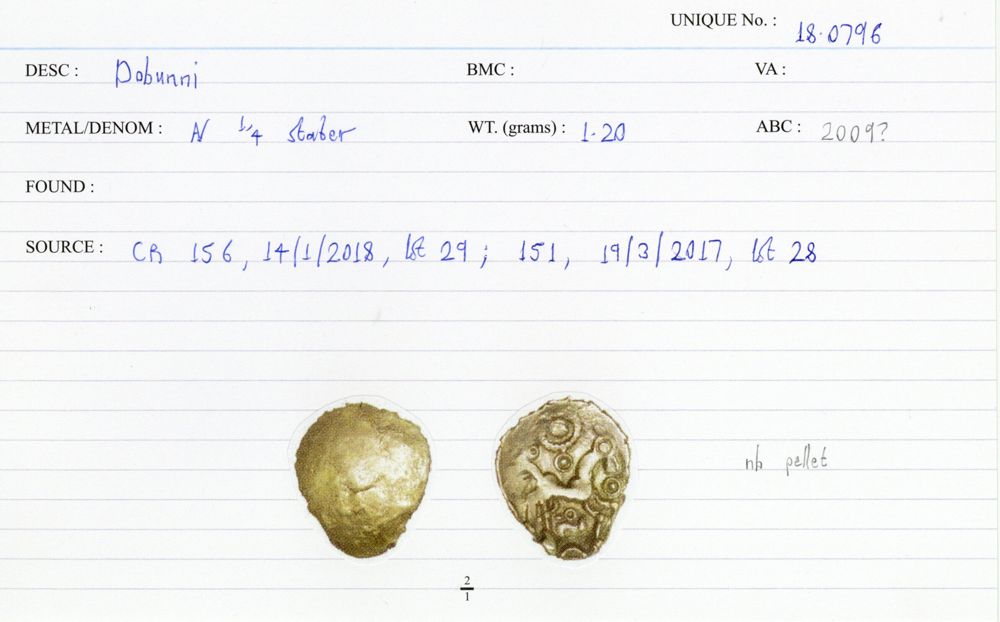 UNIQUE No. : 18.0796
DESC : Dobunni BMC : VA :
METAL/DENOM : AV 1/4 stater WT. (grams) : 1.20 ABC : 2009?
FOUND :
SOURCE : CR 156, 14/1/2018, lot 29 ; 151, 19/3/2017, lot 28
nb pellet
2
1